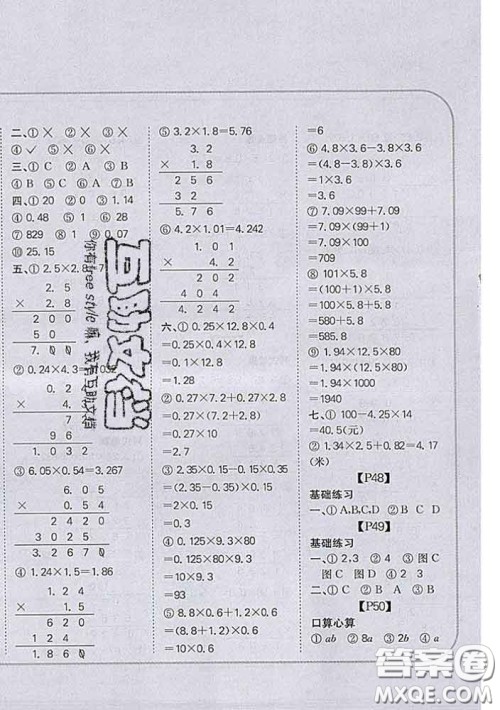 二、①× ②× ③×
④✓ ⑤× ⑥×
三、①C ②A ③B
④B ⑤C ⑥A
四、①20 ②0.01
③1.8 ④3.14
④0.48 ⑤1 ⑥28
⑦829 ⑧1
⑩25.15
五、①2.5×2.8=7
2.5
× 2.8
200
50
7.00
②0.24×4.3=1.032
4.
7
96
③6.05×0.54=3.267
6.05
× 0.54
2420
3025
3.2670
④1.24×1.5=1.86
1.24
× 1.5
620
124
1.860
⑤3.2×1.8=5.76
3.2
× 1.8
256
32
5.76
⑥4.2×1.01=4.242
1.01
× 4.2
202
404
4.242
六、①0.25×12.8×0.4
=0.25×0.4×12.8
=0.1×12.8
=1.28
②0.27×7.2+0.27×2.8
=0.27×(7.2+2.8)
=0.27×10
=2.7
③0.35×2.15-0.15×0.35
=0.35×(2.15-0.15)
=0.35×2
=0.7
④0.125×93×0.8
=0.125×0.8×93
=0.1×93
=9.3
⑤8.8×0.6+0.6×1.2
=(8.8+1.2)×0.6
=10×0.6
=6
⑥4.8×3.6-3.8×3.6
=(4.8-3.8)×3.6
=1×3.6
=3.6
⑦7.09×99+7.09
=7.09×(99+1)
=7.09×100
=709
⑧101×5.8
=(100+1)×5.8
=100×5.8+1×5.8
=580+5.8
=585.8
⑨1.94×12.5×80
=1.94×(12.5×80)
=1.94×1000
=1940
七、①100-4.25×14
=40.5(元)
②1.34×2.5+0.82=4.17
(米)
【P48】
基础练习
一、①A,B,C,D ②B C D
【P49】
基础练习
一、①2,3 ②4 ③图C
图B 图D ④图A 图C
二、①B ②C ③D
【P50】
口算心算
①ab ②8a ③2b ④a
你有free style嘛 我有互助文档
互助文档
答案圈
MXQE.COM